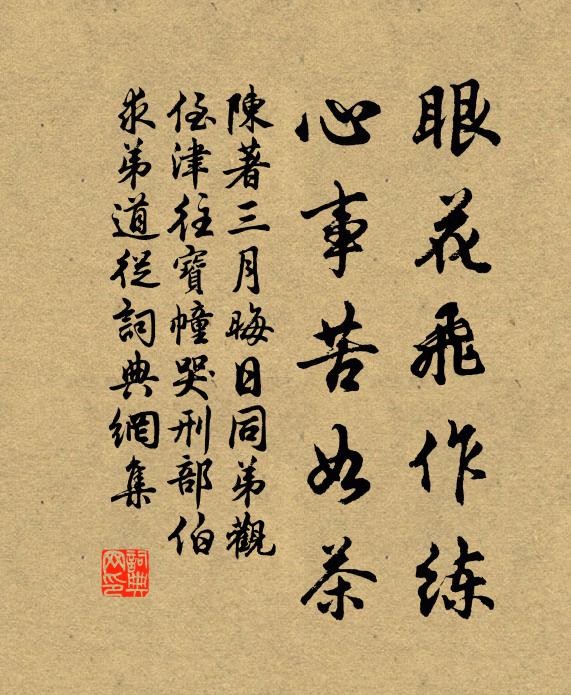 眼花飛作练
心事苦如茶
陳著三月晦日同弟觀
侄津往寶幢哭刑部伯
求弟道從詞典網集
詞典网印